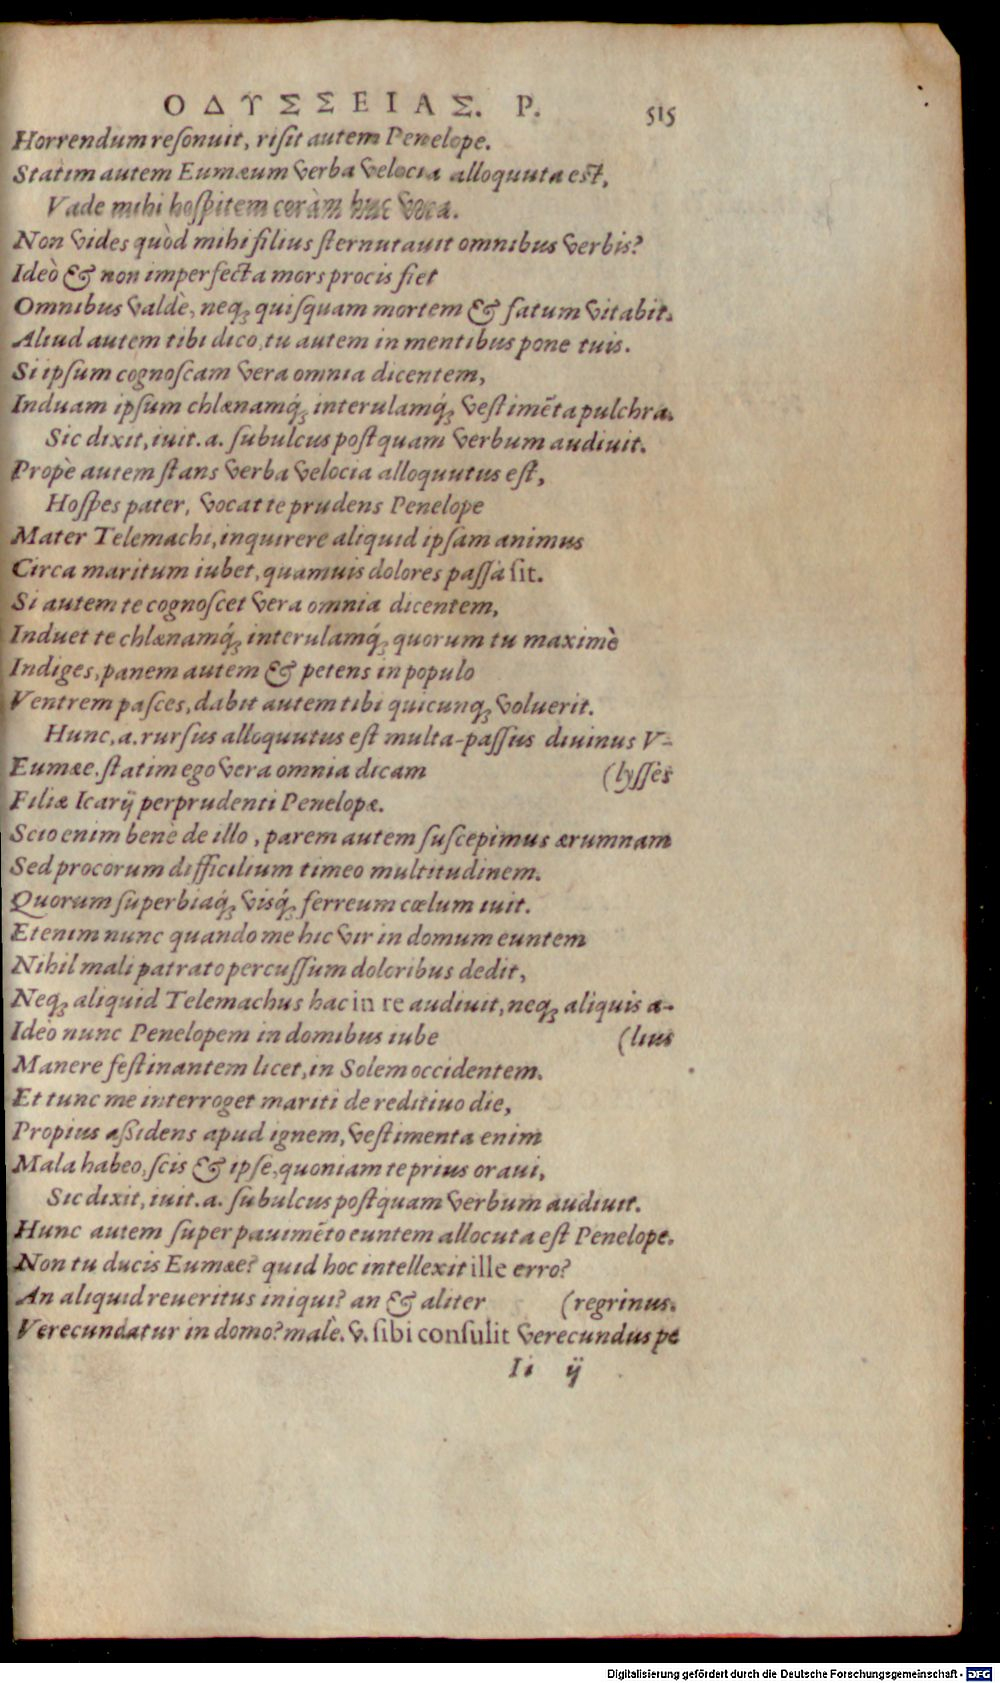 ΟΔΥΣΣΕΙΑΣ. Ρ. 515
Horrendum resonuit, risit autem Penelope.
Statim autem Eumæum verba velocia alloquuta est,
Vade mihi hospitem coràm huc voca.
Non vides quòd mihi filius sternutauit omnibus verbis?
Ideò & non imperfecta mors procis fiet
Omnibus valdè, neq; quisquam mortem & fatum vitabit.
Aliud autem tibi dico, tu autem in mentibus pone tuis.
Si ipsum cognoscam vera omnia dicentem,
Induam ipsum chlænamq́; interulamq́; vestimẽta pulchra.
Sic dixit, iuit. a. subulcus postquam verbum audiuit.
Propè autem stans verba velocia alloquutus est,
Hospes pater, vocat te prudens Penelope
Mater Telemachi, inquirere aliquid ipsam animus
Circa maritum iubet, quamuis dolores passa sit.
Si autem te cognoscet vera omnia dicentem,
Induet te chlænamq́; interulamq́; quorum tu maximè
Indiges, panem autem & petens in populo
Ventrem pasces, dabit autem tibi quicunq; voluerit.
Hunc, a. rursus alloquutus est multa-passus diuinus V-
Eumæe. statim ego vera omnia dicam (lysses
Filiæ Icarij perprudenti Penelopæ.
Scio enim benè de illo, parem autem suscepimus ærumnam
Sed procorum difficilium timeo multitudinem.
Quorum superbiaq́; visq́; ferreum cœlum iuit.
Etenim nunc quando me hic vir in domum euntem
Nihil mali patrato percussum doloribus dedit,
Neq; aliquid Telemachus hac in re audiuit, neq; aliquis a-
Ideò nunc Penelopem in domibus iube (lius
Manere festinantem licet, in Solem occidentem.
Et tunc me interroget mariti de reditiuo die,
Propius assidens apud ignem, vestimenta enim
Mala habeo, scis & ipse, quoniam te prius oraui,
Sic dixit, iuit. a. subulcus postquam verbum audiuit.
Hunc autem super pauimẽto euntem allocuta est Penelope.
Non tu ducis Eumæe? quid hoc intellexit ille erro?
An aliquid reueritus iniqui? an & aliter (regrinus.
Verecundatur in domo? malè. v. sibi consulit verecundus pe
Ii ij
Digitalisierung gefördert durch die Deutsche Forschungsgemeinschaft - DFG